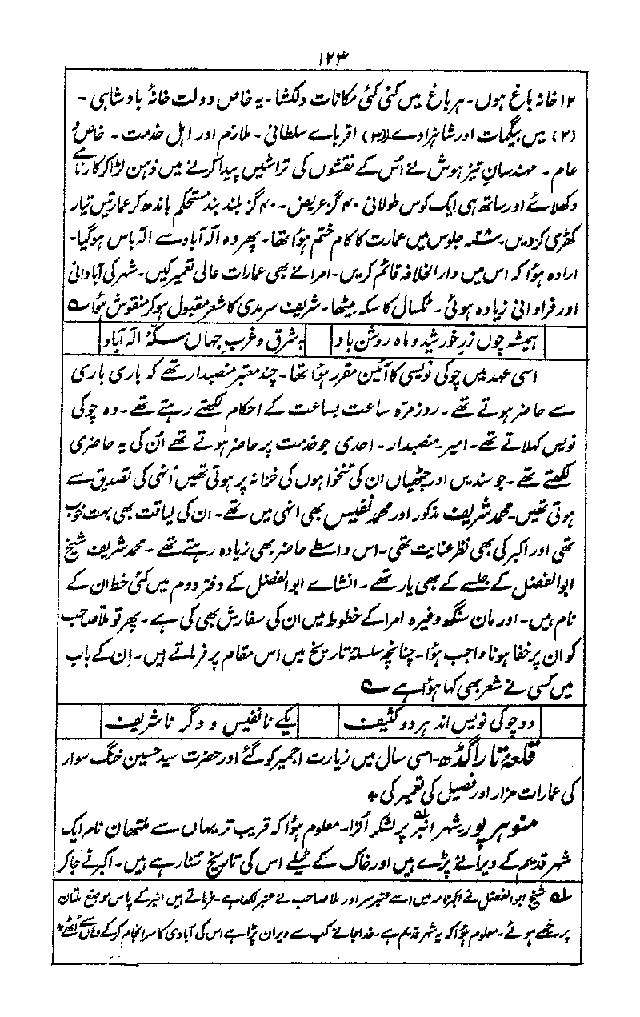 ۱۲۳
۱۲ خانہ باغ ہوں۔ ہر باغ میں کئی کئی مکانات دلکشا۔ یہ خاص دولت خانۂ بادشاہی۔
(۲) میں بیگمات اور شاہزادے (۳) اقرباے سلطانی۔ ملازم اور اہل خدمت۔ خاص و
عام۔ مہندسان تیز ہوش نے اُس کے نقشوں کی تراشیں پیدا کرنے میں ذہن لڑا کر کارنامے
دکھلائے اور ساتھ ہی ایک کوس طولانی ۴۰ گز عریض۔ ۴۰ گز بلند بند مستحکم باندھ کر عمارتیں تیار
کھڑی کر دیں۔ جلوس میں عمارت کا کام ختم ہؤا تھا۔ پھر وہ الہ آباد سے الہ باس ہو گیا۔
ارادہ ہؤا کہ اس میں دارالخلافہ قائم کریں۔ امرا نے بھی عمارات عالی تعمیر کیں۔ شہر کی آبادانی
اور فراوانی زیادہ ہوئی۔ ٹکسال کا سکہ بیٹھا۔ شریف سرمدی کا شعر مقبول ہو کر منقوش ہؤا ؎
ہمیشہ چوں زر خورشید و ماہ روشن باد بہ شرق و غرب جہاں سکۂ الہ آباد
اسی عہد میں چوکی نویسی کا آئین مقرر ہؤا تھا۔ چند معتبر منصبدار تھے کہ باری باری
سے حاضر ہوتے تھے۔ روزمرہ ساعت بساعت کے احکام لکھتے رہتے تھے۔ وہ چوکی
نویس کہلاتے تھے۔ امیر۔ منصبدار۔ احدی جو خدمت پر حاضر ہوتے تھے اُن کی یہ حاضری
لکھتے تھے۔ جو سندیں اور چٹھیاں ان کی تنخواہوں کی خزانہ پر ہوتی تھیں اُنہی کی تصدیق سے
ہوتی تھیں۔ محمد شریف مذکور اور محمد نفیس بھی انہی میں تھے۔ ان کی لیاقت بھی بہت خوب
تھی اور اکبر کی بھی نظر عنایت تھی۔ اس واسطے حاضر بھی زیادہ رہتے تھے۔ محمد شریف شیخ
ابوالفضل کے جلسے کے بھی یار تھے۔ انشاے ابوالفضل کے دفتر دوم میں کئی خط ان کے
نام ہیں۔ اور مان سنگھ وغیرہ امرا کے خطوط میں ان کی سفارش بھی کی ہے۔ پھر تو ملّا صاحب
کو ان پر خفا ہونا واجب ہؤا۔ چنانچہ سلسلۂ تاریخ میں اس مقام پر فرماتے ہیں۔ اِن کے باب
میں کسی نے شعر بھی کہا ہؤا ہے ؎
دو چوکی نویس اند ہر دو کثیف یکے نا نفیس و دگر نا شریف
قلعۂ تاراگڈھ۔ اسی سال میں زیارت اجمیر کو گئے اور حضرت سید حسین خنگ سوار
کی عمارات مزار اور فصیل کی تعمیر کی ٭
منوہر پور شہر انبر پر لشکر اُترا۔ معلوم ہؤا کہ قریب تر یہاں سے ملتھان نام ایک
شہر قدیم کے ویرانے پڑے ہیں اور خاک کے ٹیلے اس کی تاریخ سُنا رہے ہیں۔ اکبر نے جا کر
شیخ ابوالفضل نے اکبرنامہ میں اسے اور ملا صاحب نے لکھا ہے۔ فرماتے ہیں انبر کے پاس موضع ملتان
پر ہوئے۔ معلوم ہؤا کہ یہ شہر قدیم ہے۔ خدا جانے کب سے ویران پڑا ہے اس کی آبادی کا سرانجام کر کے وہاں سے اُٹھے ٭